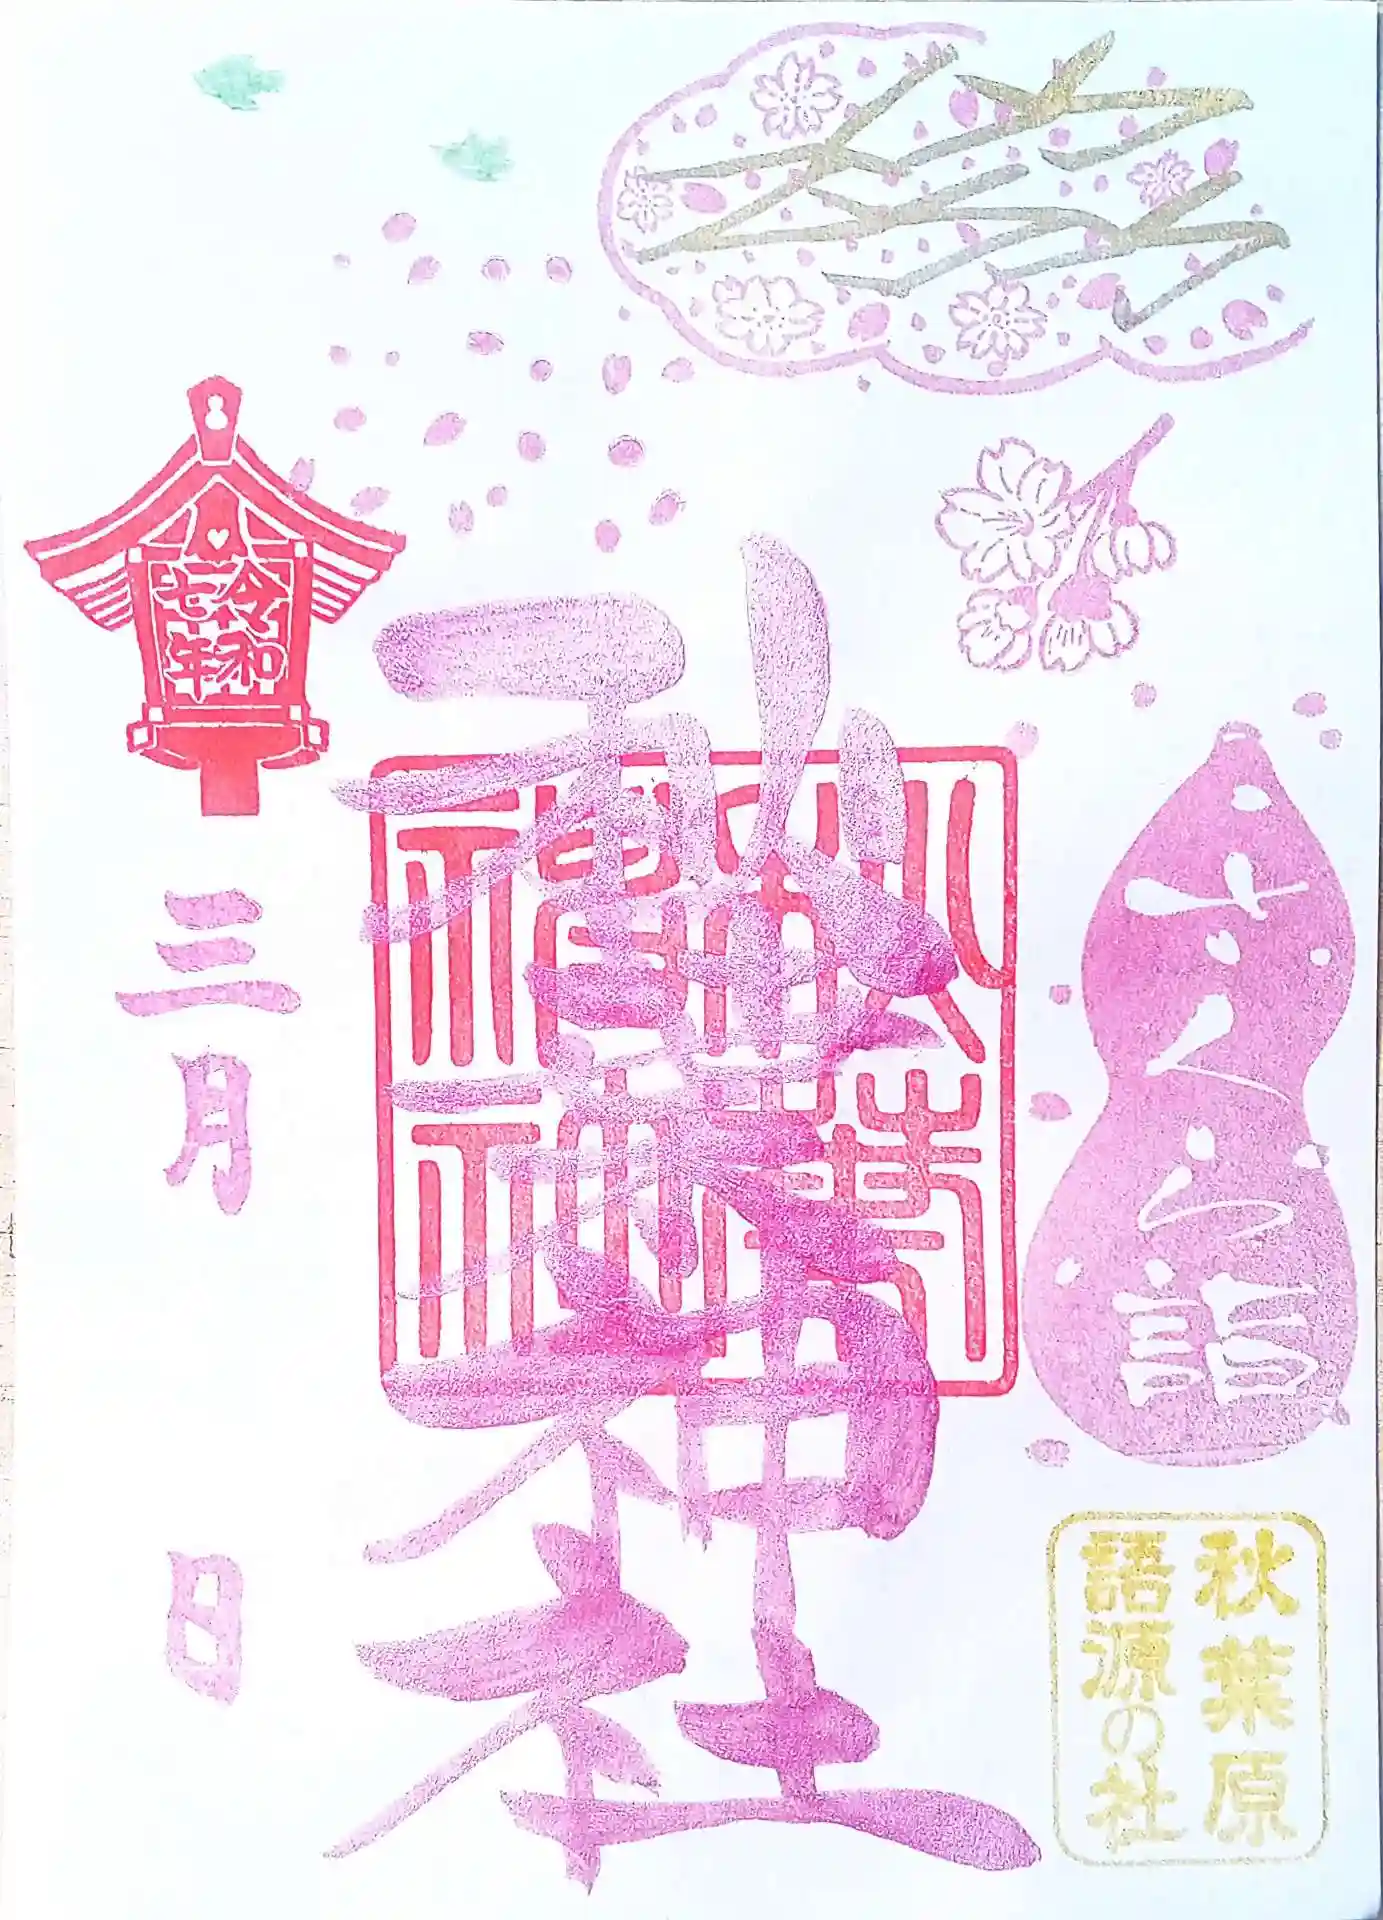 さくら詣
秋葉原
語源の社
秋葉神社
令和
七年
三月　日